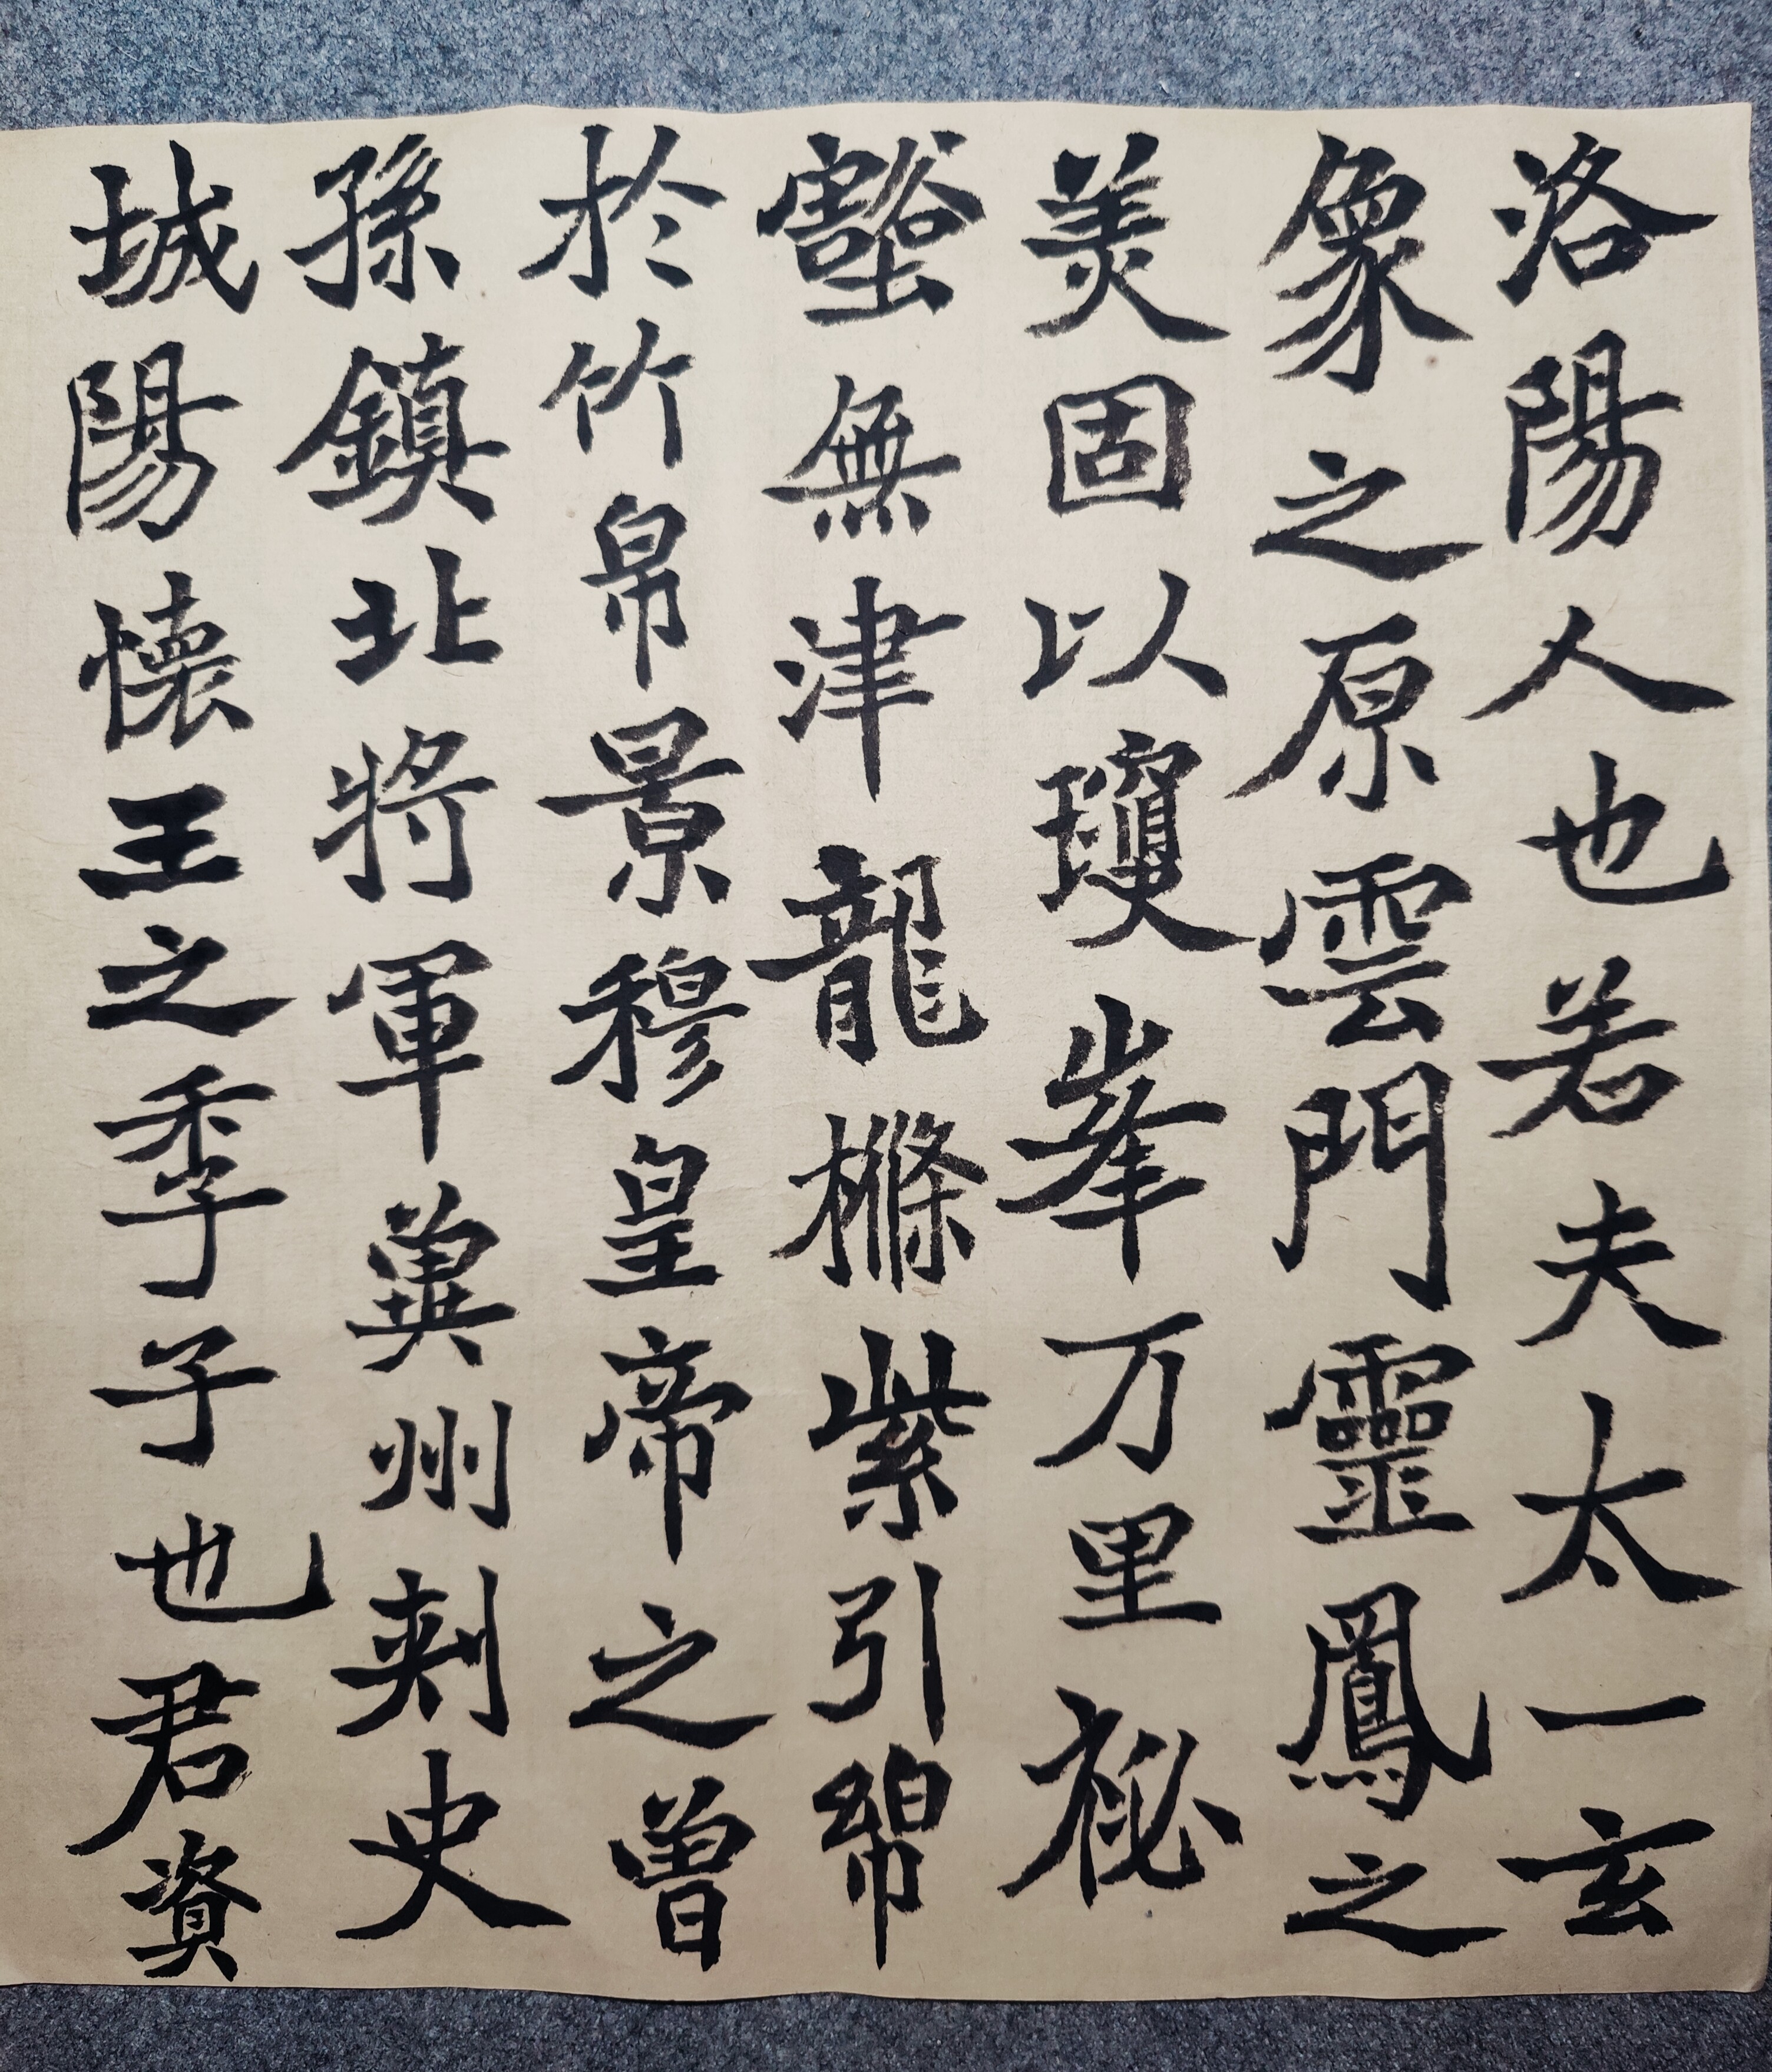 洛陽人也若夫太一玄
象之原雲門靈鳳之
美固以瓊峯万里祕
壑無津龍樤紫引綿
於竹帛景穆皇帝之曾
孫鎮北將軍冀州刺史
城陽懷王之季子也君資